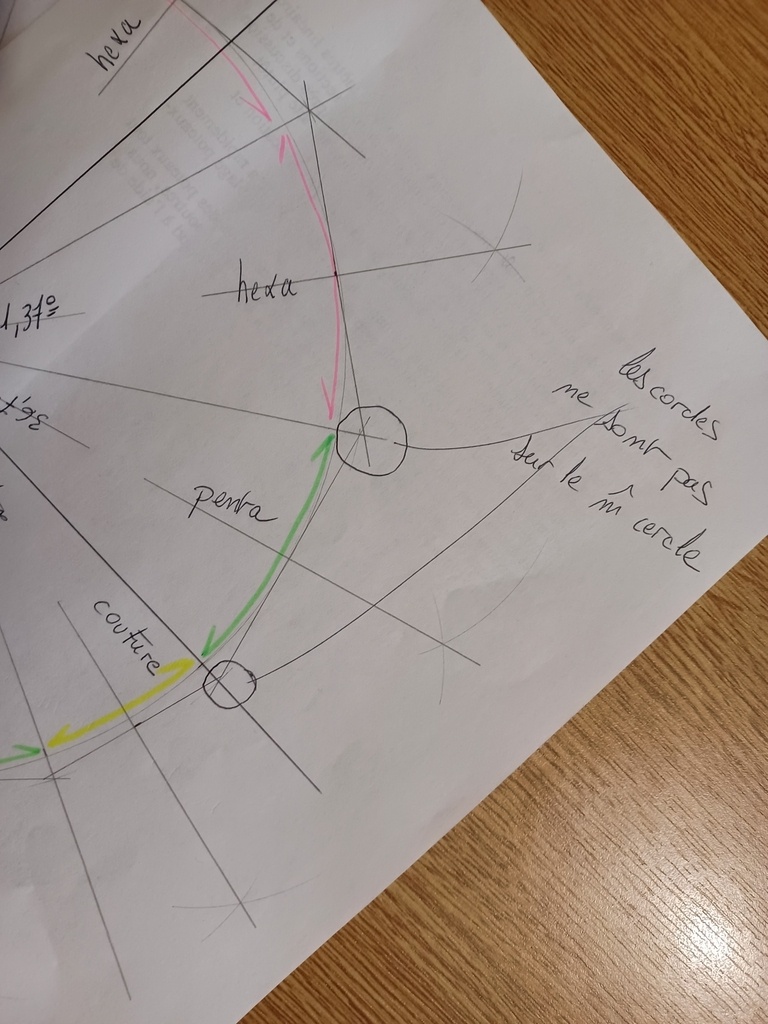 hexa
hexa
1,37°
36,7
penta
couture
les cordes
ne sont pas
sur le m̂ cercle